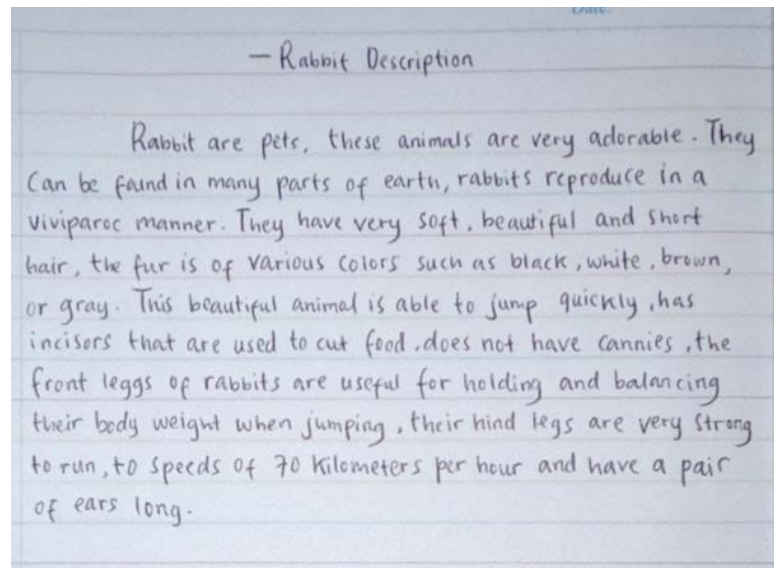 — Rabbit Description
Rabbit are pets, these animals are very adorable. They
Can be found in many parts of earth, rabbits reproduce in a
viviparoc manner. They have very soft, beautiful and short
hair, the fur is of various colors such as black, white, brown,
or gray. This beautiful animal is able to jump quickly, has
incisors that are used to cut food, does not have cannies, the
front leggs of rabbits are useful for holding and balancing
their body weight when jumping, their hind legs are very strong
to run, to speeds of 70 kilometers per hour and have a pair
of ears long.